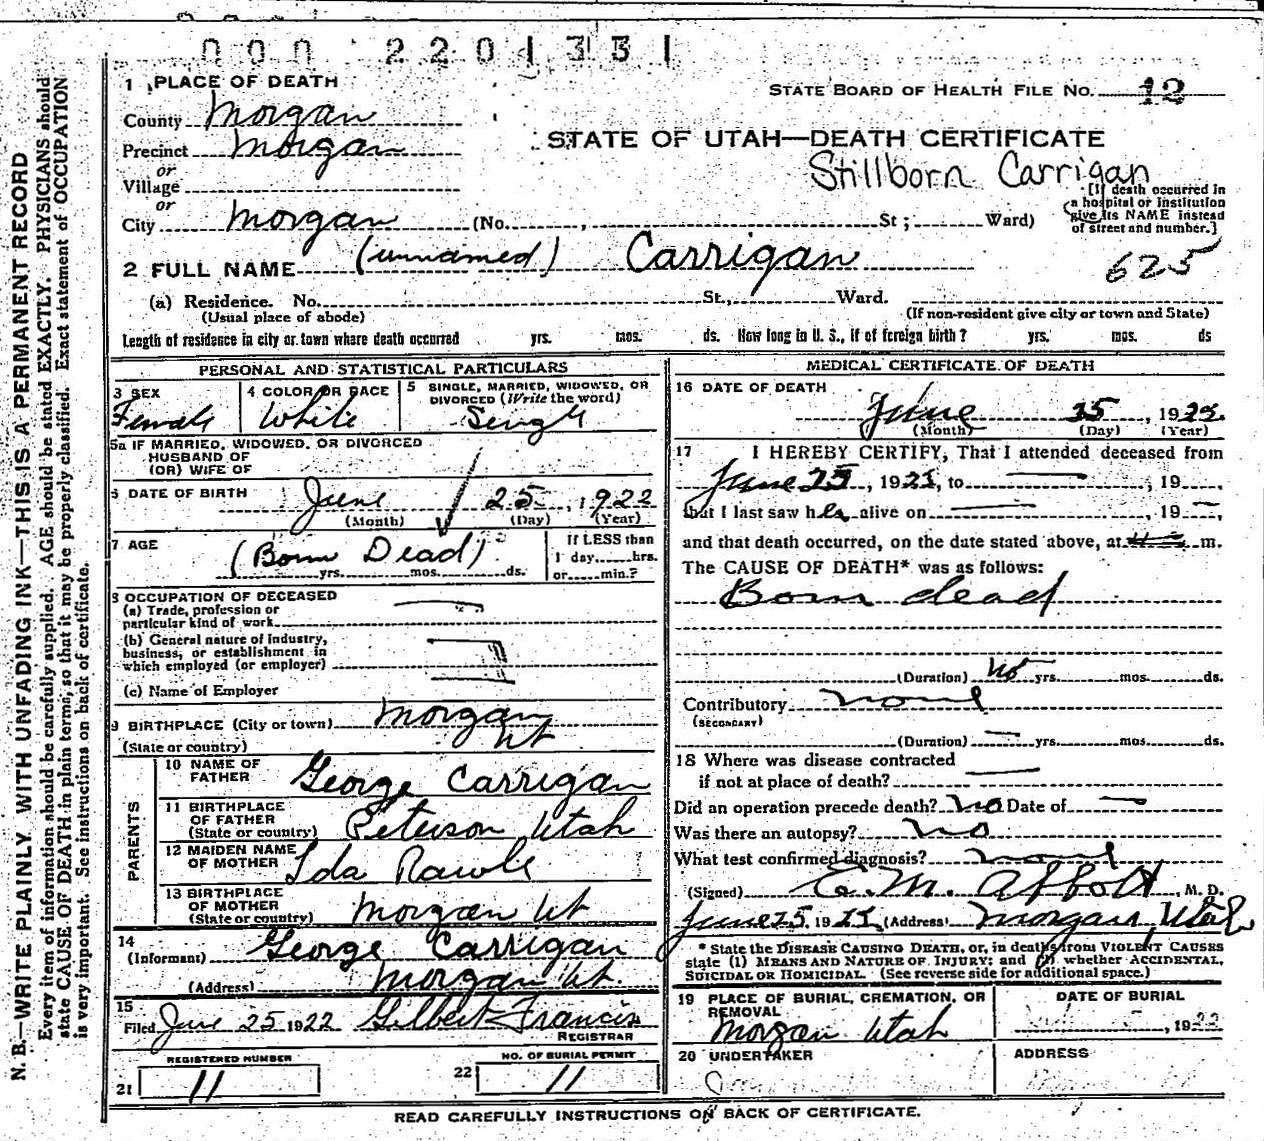 000 2201331
1 PLACE OF DEATH
STATE BOARD OF HEALTH FILE NO. 12
County Morgan
STATE OF UTAH—DEATH CERTIFICATE
Precinct Morgan
Stillborn Carrigan
or
Village
or
City Morgan (No. , St ; Ward)
[If death occurred in
a hospital or institution
give its NAME instead
of street and number.]
2 FULL NAME (unnamed) Carrigan
625
(a) Residence. No. St., Ward.
(Usual place of abode)
(If non-resident give city or town and State)
Length of residence in city or town where death occurred yrs. mos. ds. How long in U. S., if of foreign birth? yrs. mos. ds
PERSONAL AND STATISTICAL PARTICULARS
3 SEX
Female
4 COLOR OR RACE
White
5 SINGLE, MARRIED, WIDOWED, OR
DIVORCED (Write the word)
5a IF MARRIED, WIDOWED, OR DIVORCED
HUSBAND OF
(OR) WIFE OF
6 DATE OF BIRTH June 25, 1922
(Month) (Day) (Year)
7 AGE
(Born Dead)
yrs. mos. ds.
If LESS than
1 day, hrs.
or min.?
8 OCCUPATION OF DECEASED
(a) Trade, profession or
particular kind of work
(b) General nature of Industry,
business, or establishment in
which employed (or employer)
(c) Name of Employer
9 BIRTHPLACE (City or town) Morgan
(State or country) Ut
PARENTS
10 NAME OF
FATHER George Carrigan
11 BIRTHPLACE
OF FATHER
(State or country) Peterson Utah
12 MAIDEN NAME
OF MOTHER Ida Rawle
13 BIRTHPLACE
OF MOTHER
(State or country) Morgan Ut
14
(Informant) George Carrigan
(Address) Morgan Ut.
15
Filed June 25 1922 Gilbert Francis
REGISTRAR
REGISTERED NUMBER
21 11
NO. OF BURIAL PERMIT
22 11
MEDICAL CERTIFICATE OF DEATH
16 DATE OF DEATH
June 25, 19
(Month) (Day) (Year)
17 I HEREBY CERTIFY, That I attended deceased from
June 25, 19 , to — , 19
that I last saw her alive on — , 19 —,
and that death occurred, on the date stated above, at m.
The CAUSE OF DEATH* was as follows:
Born dead
(Duration) yrs. mos. ds.
Contributory none
(SECONDARY)
(Duration) — yrs. mos. ds.
18 Where was disease contracted
if not at place of death? —
Did an operation precede death? no Date of —
Was there an autopsy? no
What test confirmed diagnosis? none
(Signed) E. M. Abbott, M. D.
June 25, 19 (Address) Morgan, Utah
* State the DISEASE CAUSING DEATH, or, in deaths from VIOLENT CAUSES
state (1) MEANS AND NATURE OF INJURY: and (2) whether ACCIDENTAL,
SUICIDAL OR HOMICIDAL. (See reverse side for additional space.)
19 PLACE OF BURIAL, CREMATION, OR
REMOVAL
Morgan Utah
DATE OF BURIAL
, 1922
20 UNDERTAKER
ADDRESS
READ CAREFULLY INSTRUCTIONS ON BACK OF CERTIFICATE.
N. B.—WRITE PLAINLY WITH UNFADING INK—THIS IS A PERMANENT RECORD
Every item of information should be carefully supplied. AGE should be stated EXACTLY. PHYSICIANS should
state CAUSE OF DEATH in plain terms, so that it may be properly classified. Exact statement of OCCUPATION
is very important. See instructions on back of certificate.